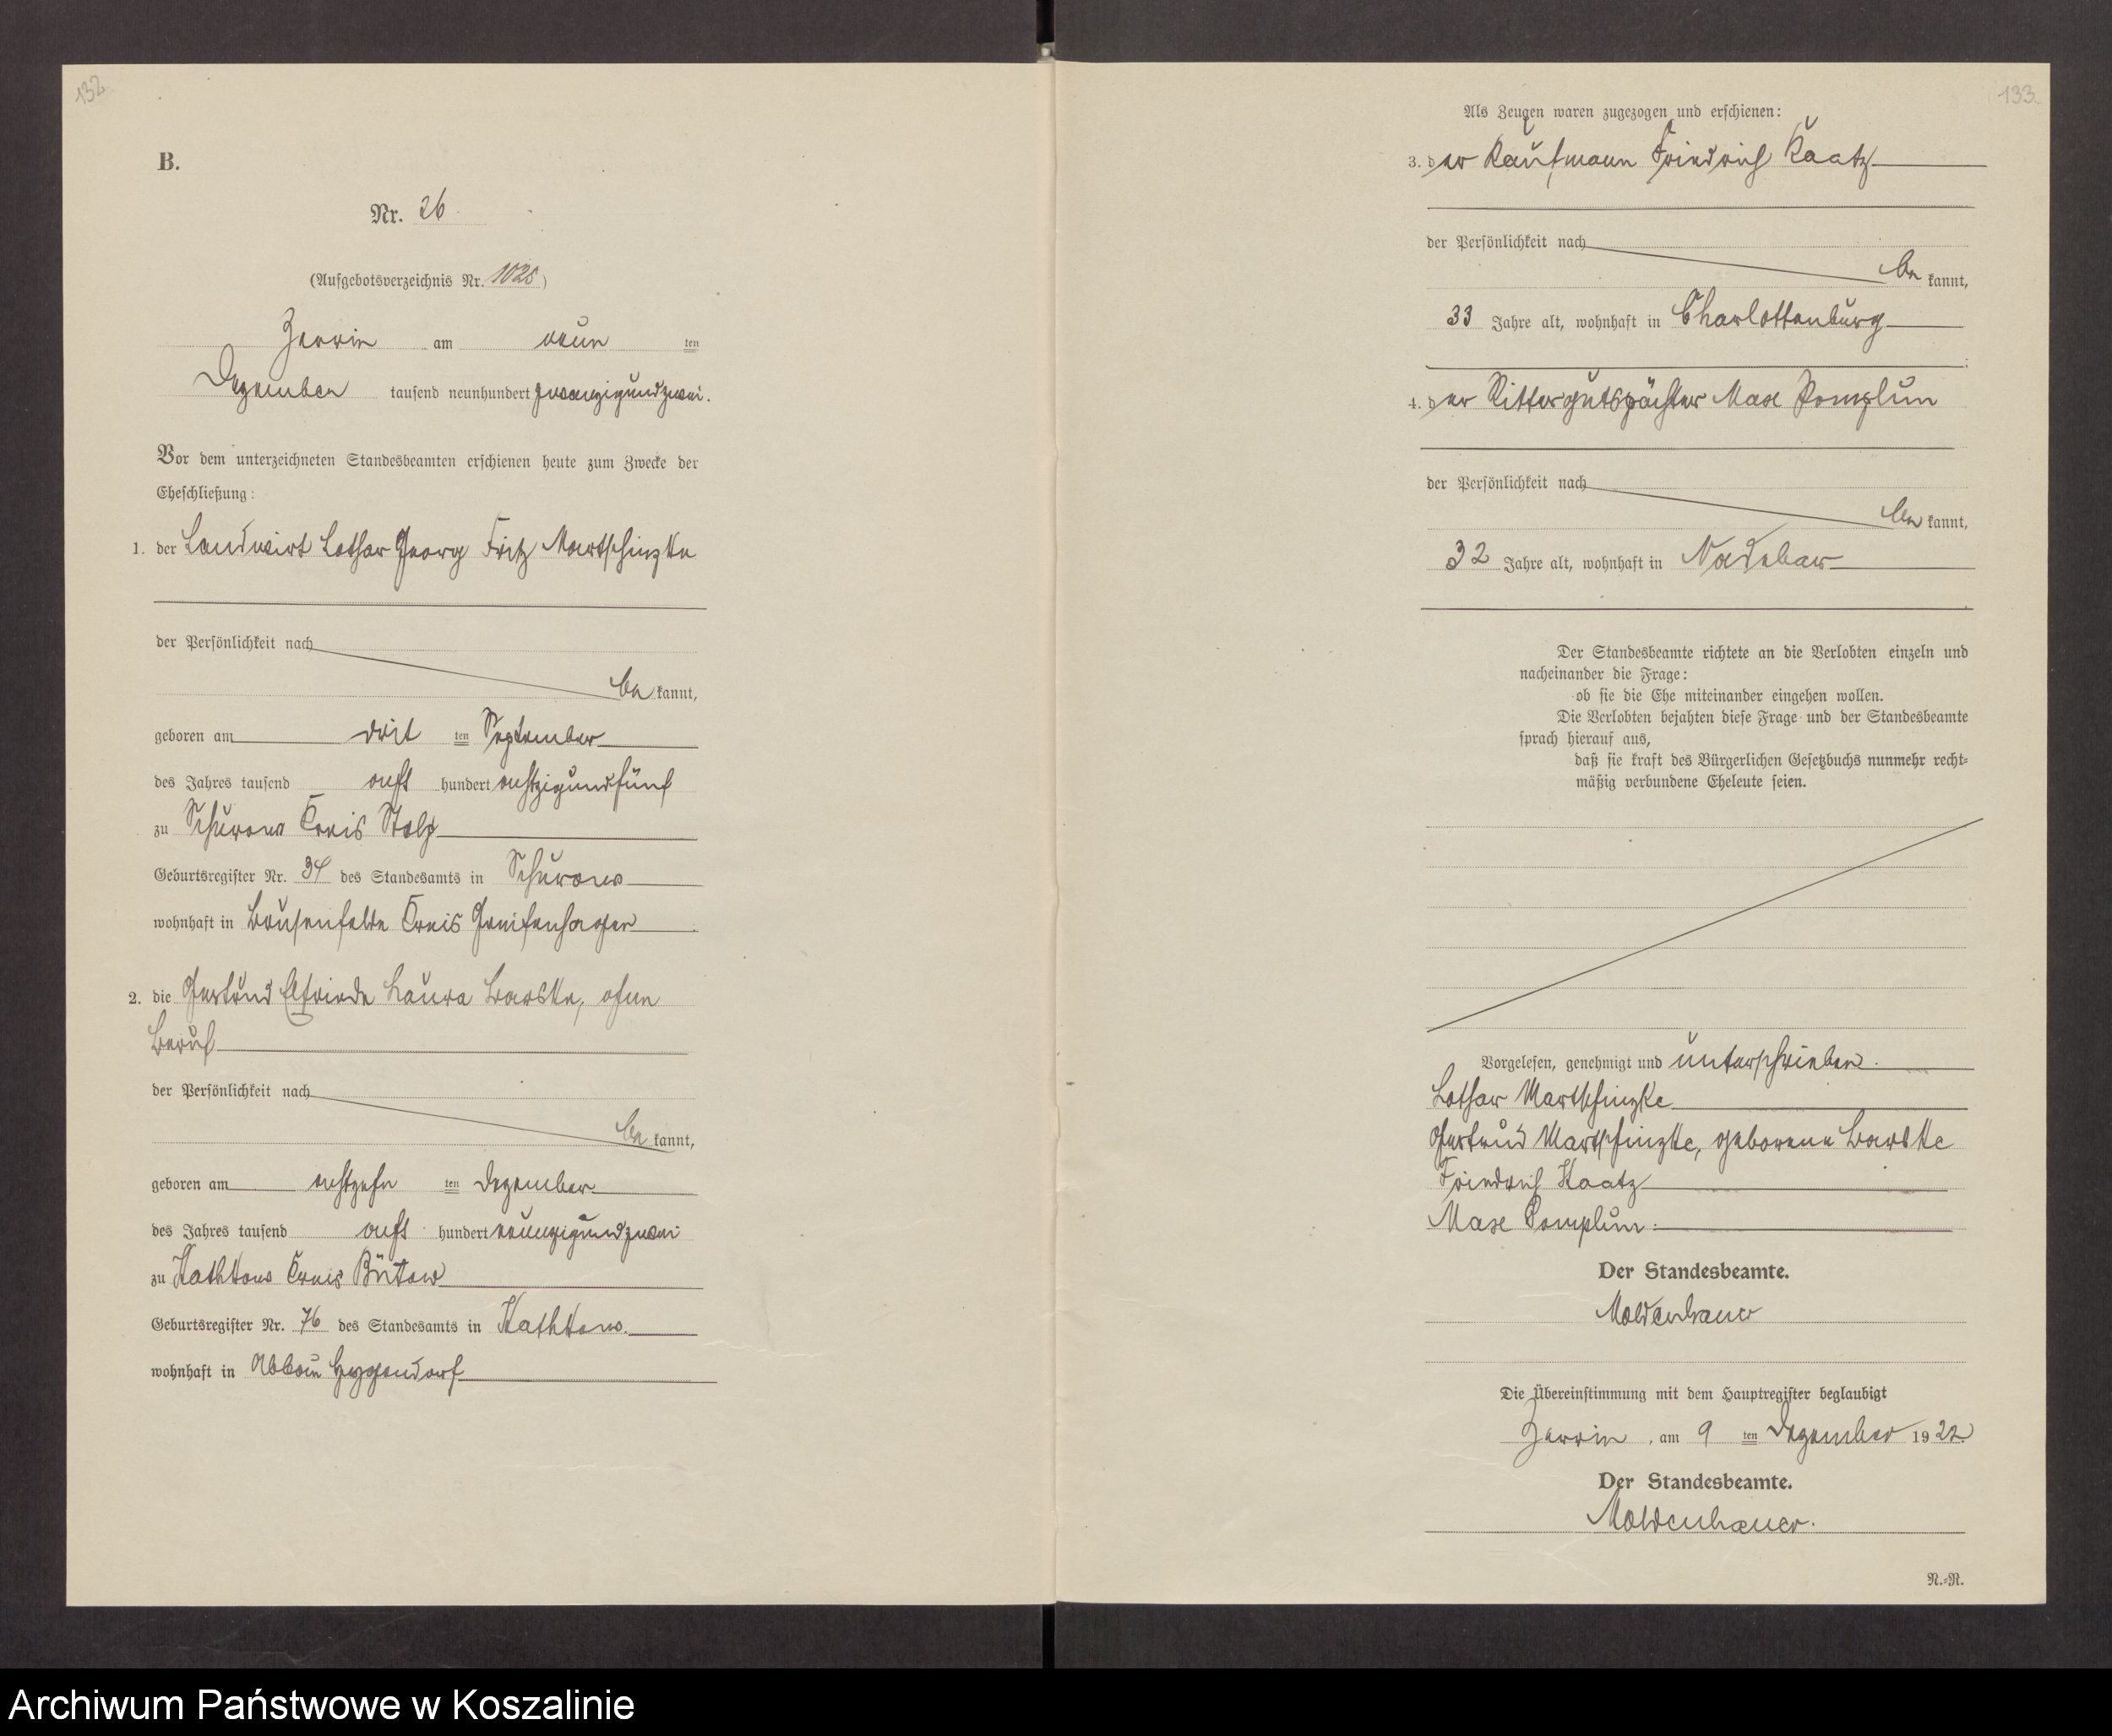 132
B.
Nr. 26
(Aufgebotsverzeichnis Nr. 1025)
Zerrin am neun ten
Dezember tausend neunhundert zwanzigundzwei.
Vor dem unterzeichneten Standesbeamten erschienen heute zum Zwecke der
Eheschließung:
1. der Landwirt Lothar Georg Fritz Martschinzke
der Persönlichkeit nach
be kannt,
geboren am drit ten September
des Jahres tausend acht hundert achtzigundfünf
zu Schurow Kreis Stolp
Geburtsregister Nr. 34 des Standesamts in Schurow
wohnhaft in Brusenfelde Kreis Greifenhagen
2. die Gertrud Elfriede Laura Barske, ohne
Beruf
der Persönlichkeit nach
be kannt,
geboren am achtzehn ten Dezember
des Jahres tausend acht hundert neunzigundzwei
zu Kathkow Kreis Bütow
Geburtsregister Nr. 76 des Standesamts in Kathkow.
wohnhaft in Abbau Hygendorf
133.
Als Zeugen waren zugezogen und erschienen:
3. der Kaufmann Friedrich Kaatz
der Persönlichkeit nach
be kannt,
33 Jahre alt, wohnhaft in Charlottenburg
4. der Rittergutspächter Max Pomplun
der Persönlichkeit nach
be kannt,
32 Jahre alt, wohnhaft in Nadebar
Der Standesbeamte richtete an die Verlobten einzeln und
nacheinander die Frage:
ob sie die Ehe miteinander eingehen wollen.
Die Verlobten bejahten diese Frage und der Standesbeamte
sprach hierauf aus,
daß sie kraft des Bürgerlichen Gesetzbuchs nunmehr recht-
mäßig verbundene Eheleute seien.
Vorgelesen, genehmigt und unterschrieben.
Lothar Martschinzke
Gertrud Martschinzke, geborene Barske
Friedrich Kaatz
Max Pomplun.
Der Standesbeamte.
Moldenhauer
Die Übereinstimmung mit dem Hauptregister beglaubigt
Zerrin, am 9 ten Dezember 1922.
Der Standesbeamte.
Moldenhauer.
N.-R.
Archiwum Państwowe w Koszalinie